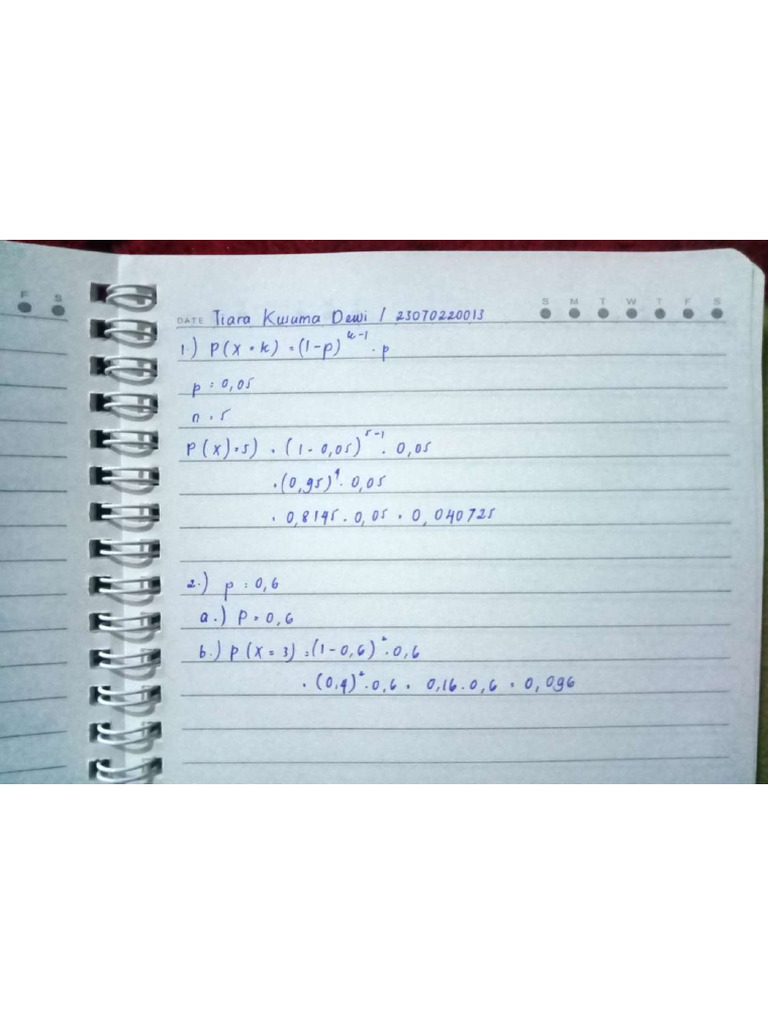 F S
S M T W T F S
DATE Tiara Kusuma Dewi / 23070220013
1.) P(X = k) = (1-p)^k-1 . p
p = 0,05
n = 5
P(X) = 5) = (1 - 0,05)^5-1 . 0,05
= (0,95)^4 . 0,05
= 0,8145 . 0,05 = 0,040725
2.) p = 0,6
a.) P = 0,6
b.) P(X = 3) = (1 - 0,6)^2 . 0,6
= (0,4)^2 . 0,6 = 0,16 . 0,6 = 0,096